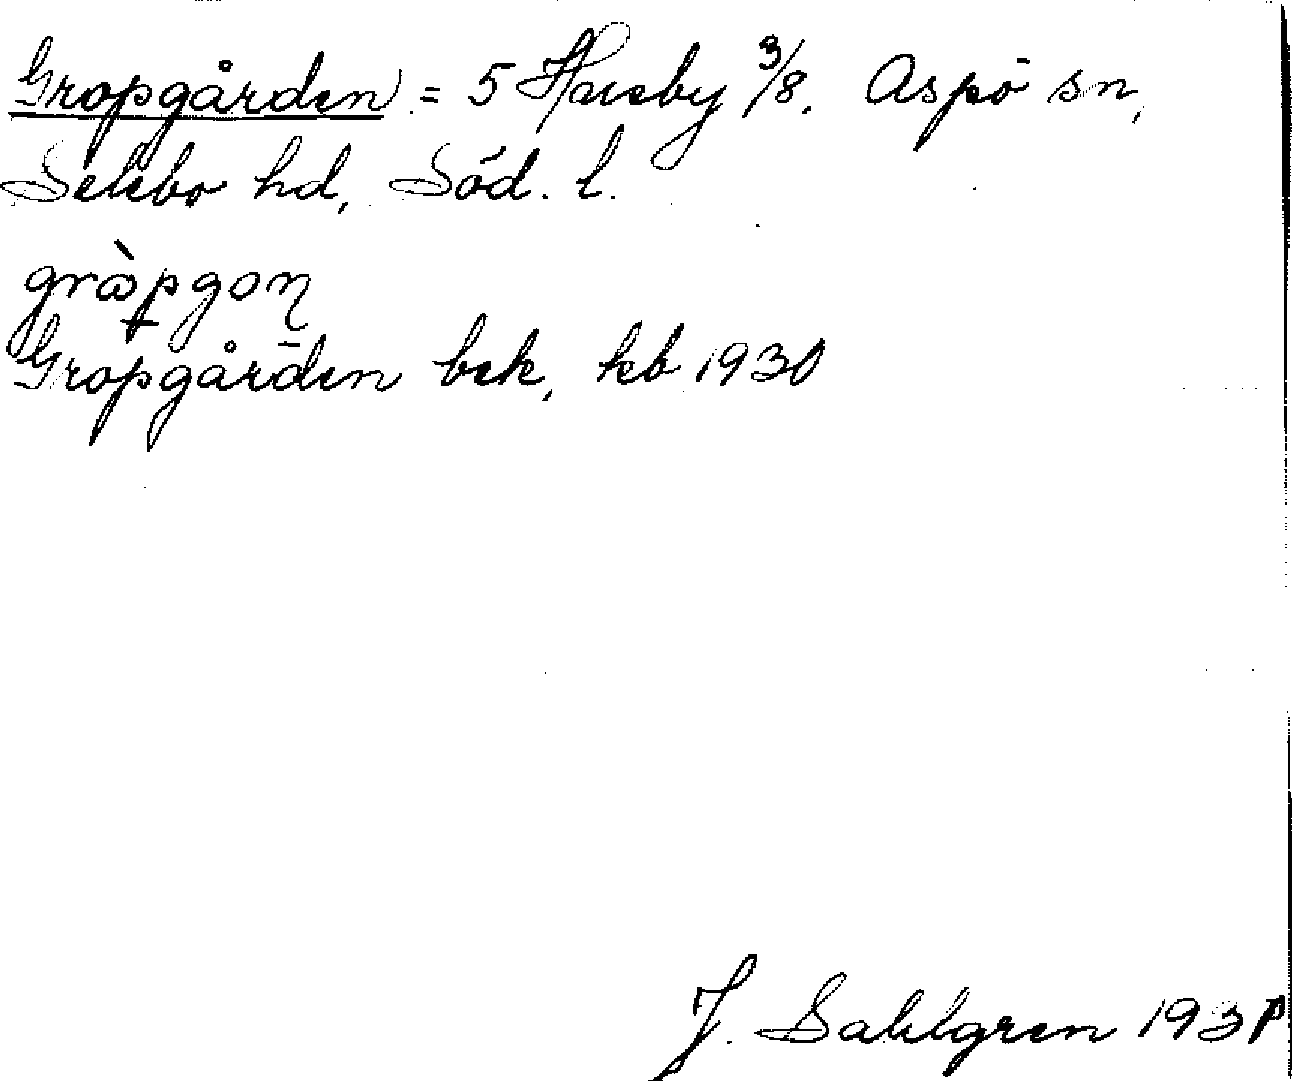 Gropgården = 5 Harby 3/8. Aspö sn,
Selebo hd, Söd. l.
Gropgården bek, kb 1930
J. Sahlgren 193